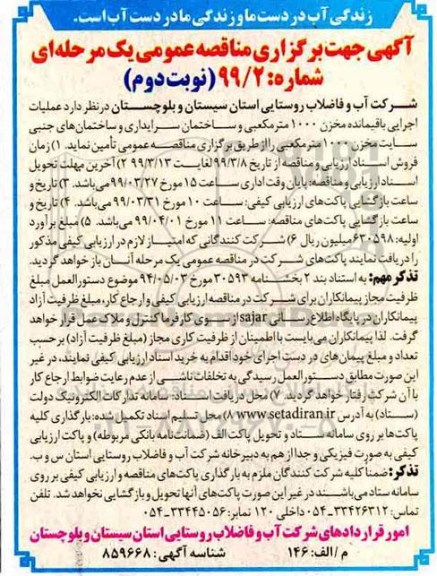 زندگی آب در دست ما و زندگی ما در دست آب است.
آگهی جهت برگزاری مناقصه عمومی یک مرحله‌ای
شماره: ۹۹/۲ (نوبت دوم)
شرکت آب و فاضلاب روستایی استان سیستان و بلوچستان در نظر دارد عملیات
اجرایی باقیمانده مخزن ۱۰۰۰ مترمکعبی و ساختمان سرایداری و ساختمان‌های جنبی
سایت مخزن ۱۰۰۰ مترمکعبی را از طریق برگزاری مناقصه عمومی تأمین نماید. ۱) زمان
فروش اسناد ارزیابی و مناقصه از تاریخ ۹۹/۳/۸ لغایت ۹۹/۳/۱۳ ۲) آخرین مهلت تحویل
اسناد ارزیابی و مناقصه: پایان وقت اداری ساعت ۱۵ مورخ ۹۹/۰۳/۲۷ می‌باشد. ۳) تاریخ و
ساعت بازگشایی پاکت‌های ارزیابی کیفی: ساعت ۱۰ مورخ ۹۹/۰۳/۳۱ می‌باشد. ۴) تاریخ و
ساعت بازگشایی پاکت‌های مناقصه: ساعت ۱۱ مورخ ۹۹/۰۴/۰۱ می‌باشد. ۵) مبلغ برآورد
اولیه: ۶۳۰۵۹۸ میلیون ریال ۶) شرکت کنندگانی که امتیاز لازم در ارزیابی کیفی مذکور
را دریافت نمایند پاکت‌های شرکت در مناقصه عمومی یک مرحله آنان باز خواهد گردید.
تذکر مهم: به استناد بند ۲ بخشنامه ۳۰۵۹۳ مورخ ۹۴/۰۵/۰۳ موضوع دستورالعمل مبلغ
ظرفیت مجاز پیمانکاران برای شرکت در مناقصه ارزیابی کیفی و ارجاع کار، مبلغ ظرفیت آزاد
پیمانکاران در پایگاه اطلاع رسانی sajar از سوی کارفرما کنترل و ملاک عمل قرار خواهد
گرفت. لذا پیمانکاران می‌بایست با اطمینان از ظرفیت کاری مجاز (مبلغ ظرفیت آزاد) برحسب
تعداد و مبلغ پیمان‌های در دست اجرای خود اقدام به خرید اسناد ارزیابی کیفی نمایند، در غیر
این صورت مطابق دستورالعمل رسیدگی به تخلفات ناشی از عدم رعایت ضوابط ارجاع کار
با آن شرکت رفتار خواهد گردید. ۷) محل دریافت اسناد: سامانه تدارکات الکترونیک دولت
(ستاد) به آدرس www.setadiran.ir ۸) محل تسلیم اسناد تکمیل شده: بارگذاری کلیه
پاکت‌ها بر روی سامانه ستاد و تحویل پاکت الف (ضمانت‌نامه بانکی مربوطه) و پاکت ارزیابی
کیفی به صورت فیزیکی و جدا از هم به دبیرخانه شرکت آب و فاضلاب روستایی استان س و ب.
تذکر: ضمناً کلیه شرکت کنندگان ملزم به بارگذاری پاکت‌های مناقصه و ارزیابی کیفی بر روی
سامانه ستاد می‌باشند در غیر این صورت پاکت‌های آنها تحویل و بازگشایی نخواهد شد. تلفن
تماس: ۳۳۴۲۶۳۱۲-۰۵۴ داخلی ۱۲۰ نمابر: ۳۳۴۴۵۰۵۶-۰۵۴
امور قراردادهای شرکت آب و فاضلاب روستایی استان سیستان و بلوچستان
م/الف: ۱۴۶ شناسه آگهی: ۸۵۹۶۶۸